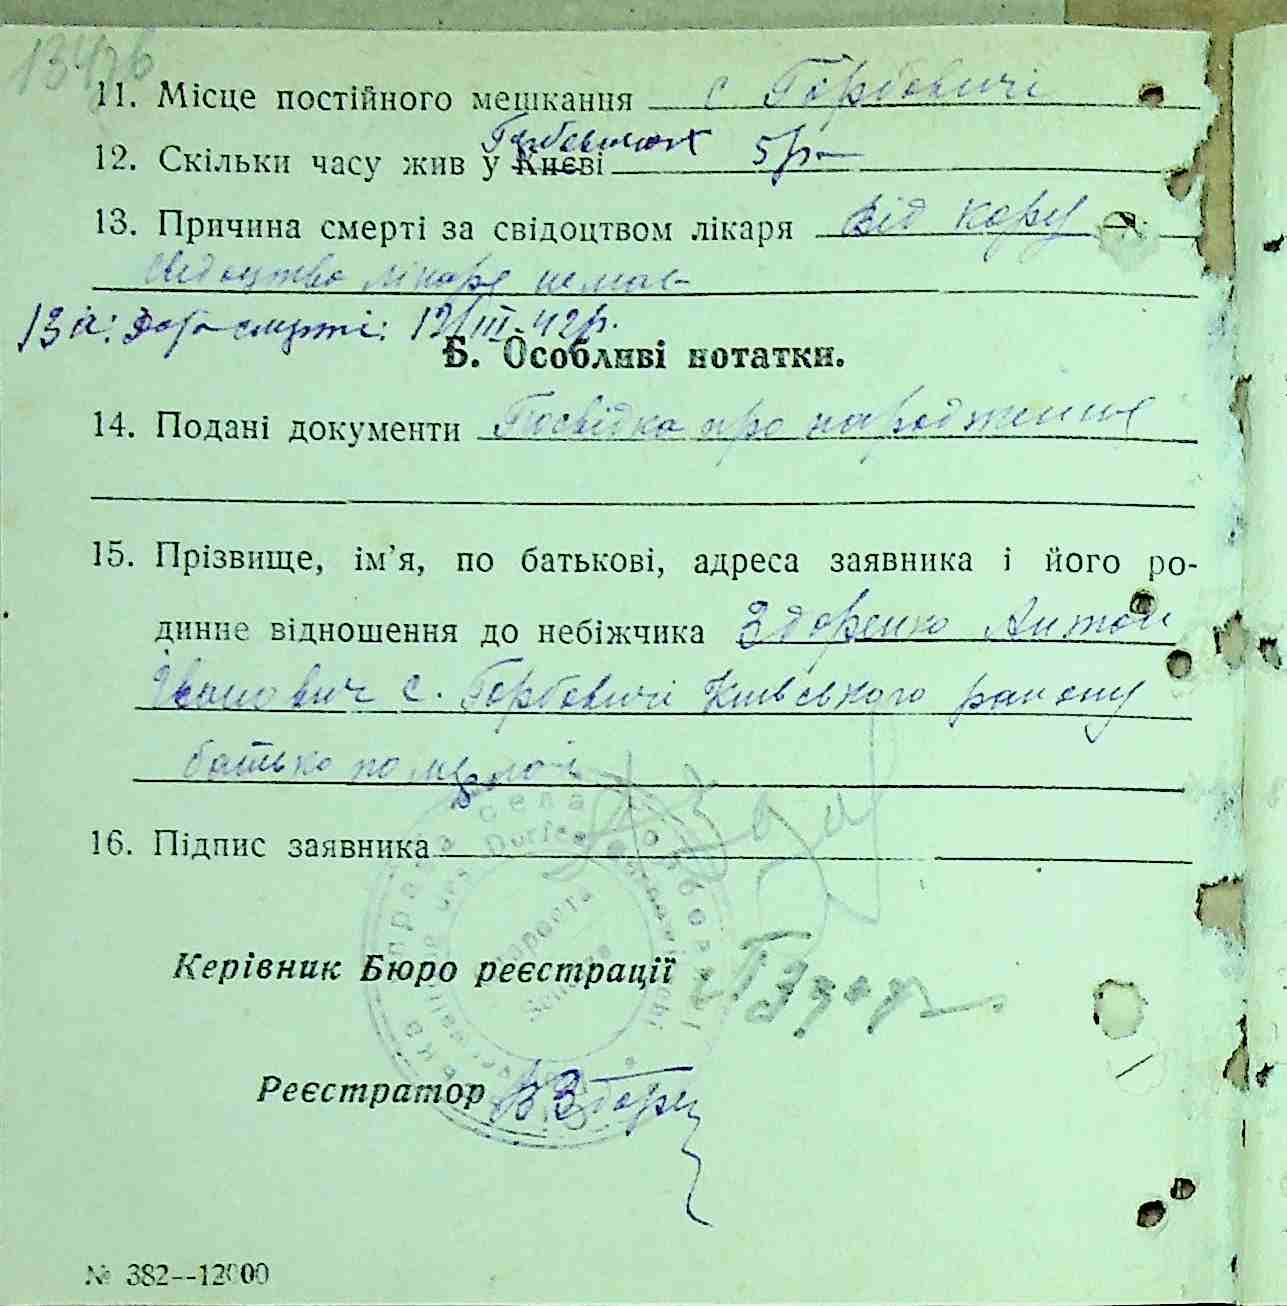 134зв
11. Місце постійного мешкання с Горбовичі
12. Скільки часу жив у Києві Горбовичах 5 р.
13. Причина смерті за свідоцтвом лікаря Від кору
свідоцтва лікаря немає
13а: Дата смерті: 12/III-42р.
Б. Особливі нотатки.
14. Подані документи Посвідка про народження
15. Прізвище, ім’я, по батькові, адреса заявника і його ро-
динне відношення до небіжчика Здоренко Антон
Іванович с. Горбовичі Київського району
батько
16. Підпис заявника
Керівник Бюро реєстрації
Реєстратор
№ 382--12000